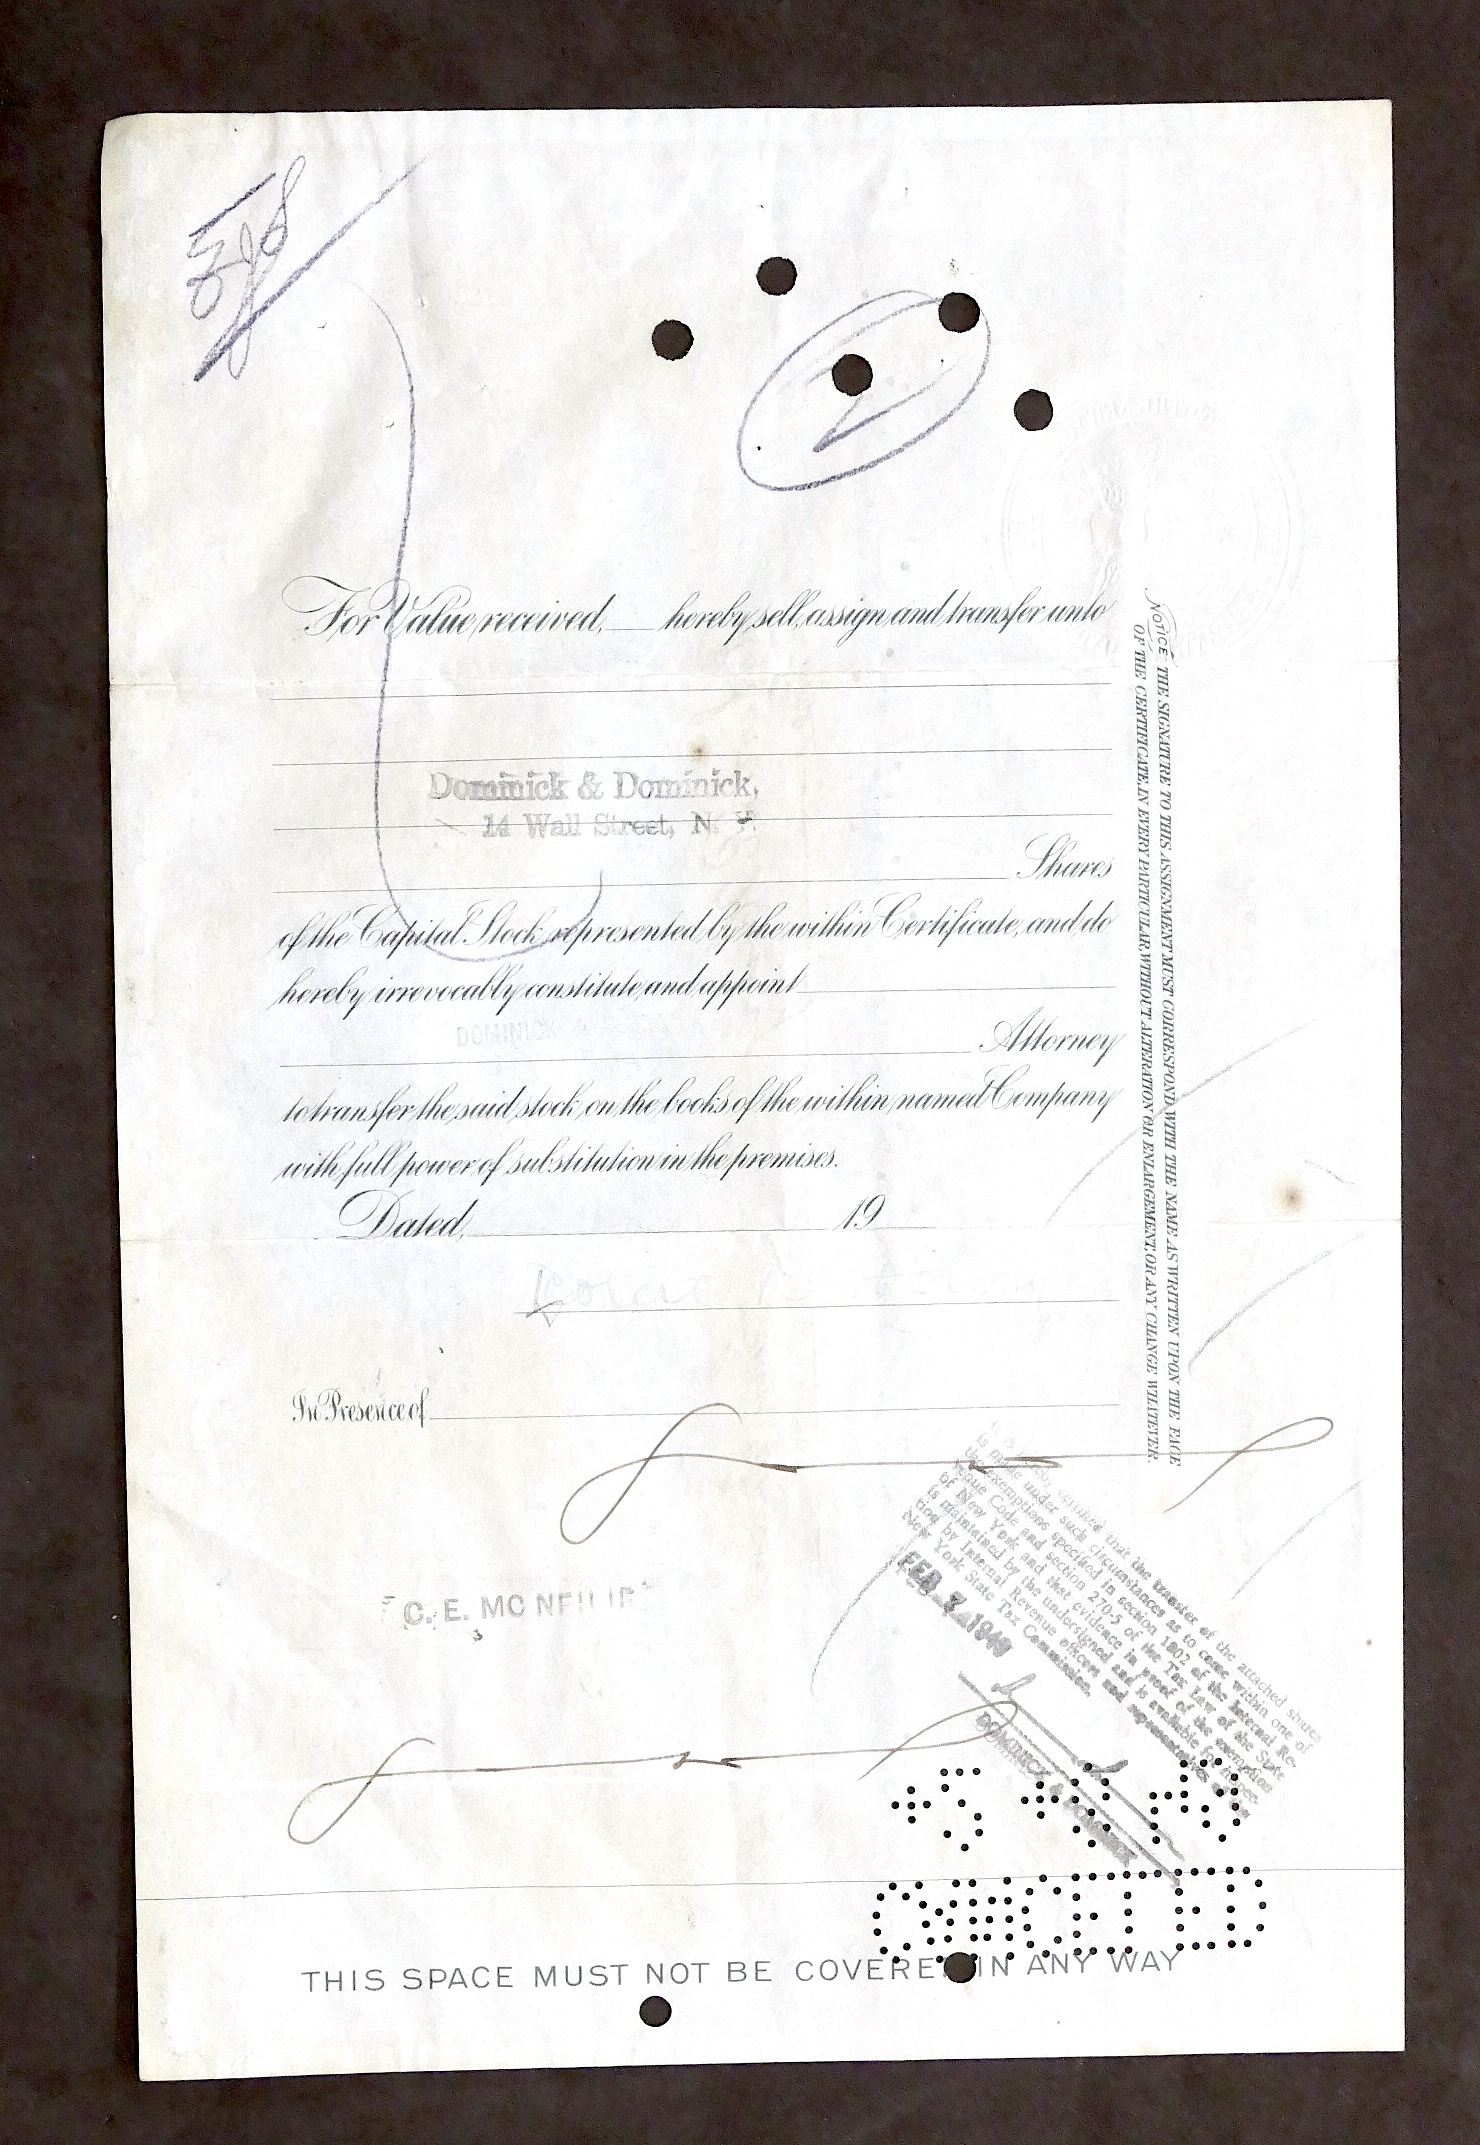 For Value received, hereby sell, assign and transfer unto
Dominick & Dominick,
14 Wall Street, N. Y.
Shares
of the Capital Stock represented by the within Certificate, and do
hereby irrevocably constitute and appoint
DOMINICK
Attorney
to transfer the said stock on the books of the within named Company
with full power of substitution in the premises.
Dated, 19
In Presence of
NOTICE: THE SIGNATURE TO THIS ASSIGNMENT MUST CORRESPOND WITH THE NAME AS WRITTEN UPON THE FACE
OF THE CERTIFICATE, IN EVERY PARTICULAR, WITHOUT ALTERATION OR ENLARGEMENT, OR ANY CHANGE WHATEVER.
C. E. MC NEILIE
certified that the transfer of the attached shares
is made under such circumstances as to come within one of
the exemptions specified in section 1802 of the Internal Re-
venue Code and section 270-5 of the Tax Law of the State
of New York and that evidence in proof of the exemption
is maintained by the undersigned and is available for inspec-
tion by Internal Revenue officers and representatives of the
New York State Tax Commission.
FEB 7 1949
DOMINICK & DOMINICK
THIS SPACE MUST NOT BE COVERED IN ANY WAY